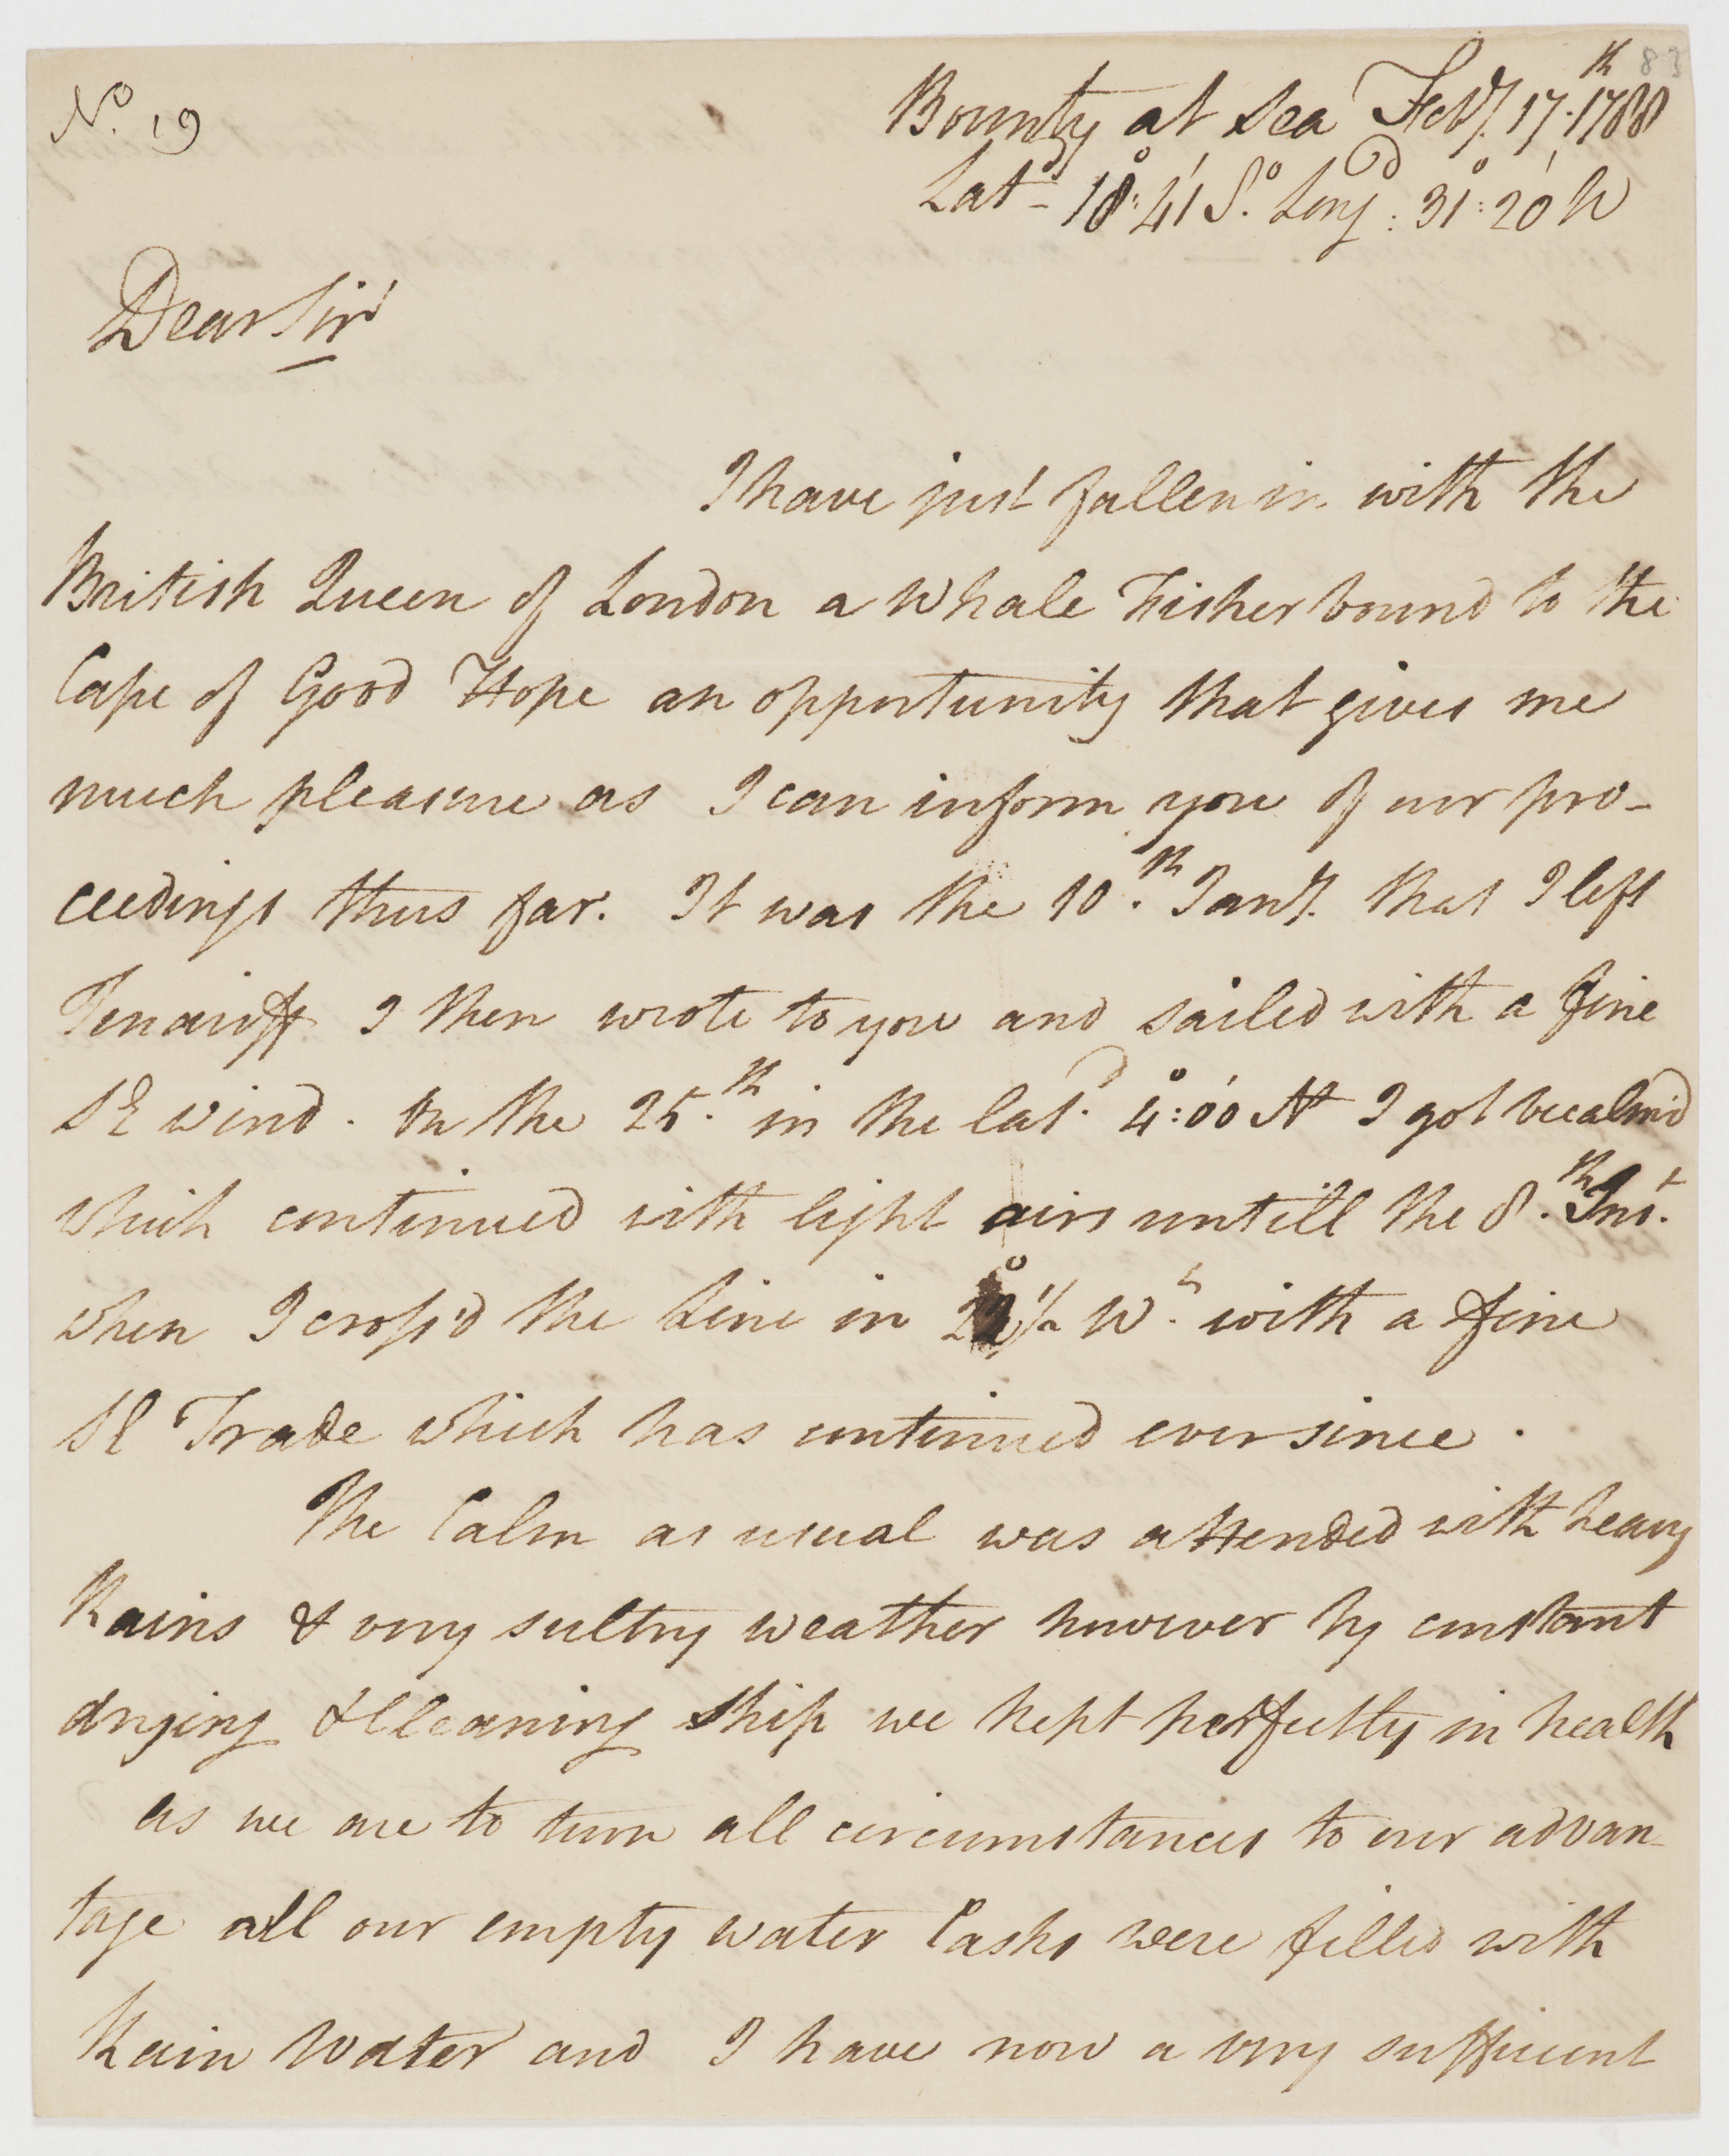 83
No. 19
Bounty at Sea Feby. 17th. 1788
Latd. 18°:41' So. Long: 31°:20' W
Dear Sir
I have just fallen in with the
British Queen of London a Whale Fisher bound to the
Cape of Good Hope an opportunity that gives me
much pleasure as I can inform you of our pro-
ceedings thus far. It was the 10th. Jany. that I left
Tenariff I then wrote to you and sailed with a fine
SE wind. On the 25th. in the latd. 4°:00' N I got becalm'd
which continued with light airs untill the 8th. Inst.
when I cross'd the Line in ½ W. with a fine
SE Trade which has continued ever since.
The Calm as usual was attended with heavy
Rains & very sultry weather however by constant
drying & Cleaning Ship we kept perfectly in health
as we are to turn all circumstances to our advan-
tage all our empty water Casks were filled with
Rain Water and I have now a very sufficient